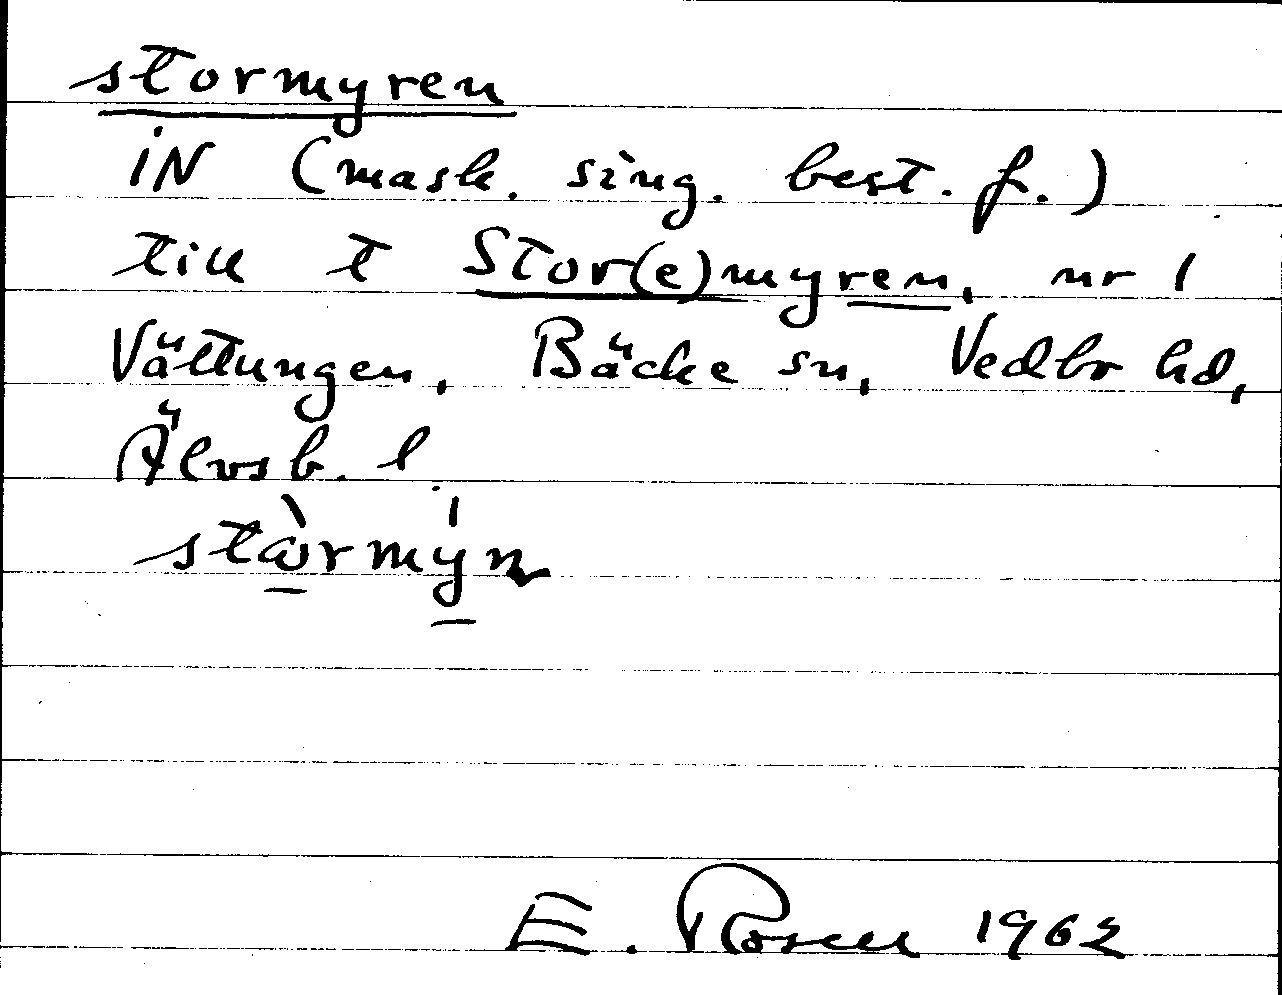 stormyren
iN (mask. sing. best. f.)
till t Stor(e)myren, nr 1
Vättungen, Bäcke sn, Vedbo hd,
Älvsb. l
E. Rosen 1962